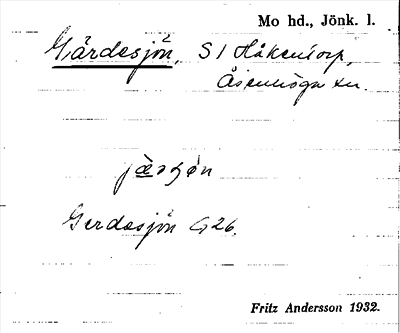 Mo hd., Jönk. l.
Gärdesjön, S1 Håkentorp,
Åsenhöga sn.
jæ̀rʃo̱n
Gerdesjön G26.
Fritz Andersson 1932.